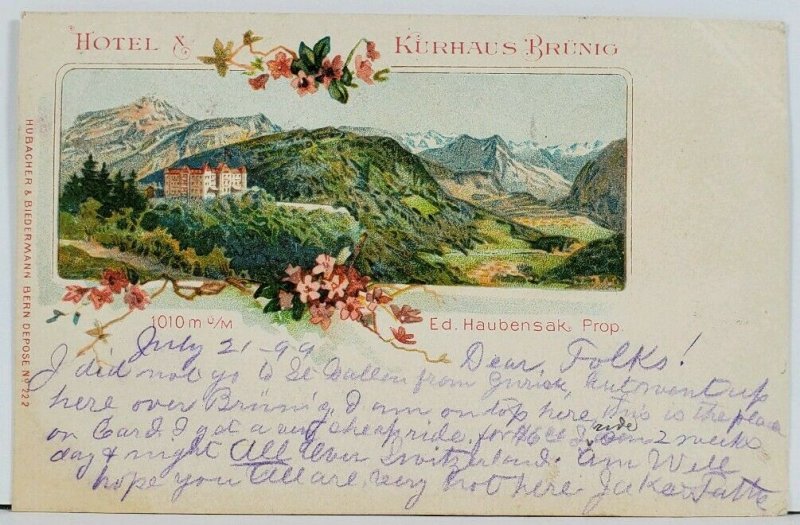 HOTEL & KURHAUS BRÜNIG
HUBACHER & BIEDERMANN BERN DEPOSE No 222
1010 m ü/M.
Ed. Haubensak, Prop.
July 21-99
Dear, Folks!
I did not go to St Gallen from Zurich, but went up
here over Brünig, I am on top here, this is the place
on Card. I got a very cheap ride. for I can ride 2 weeks
day & night All Over Switzerland. Am Well
hope you All are, very hot here